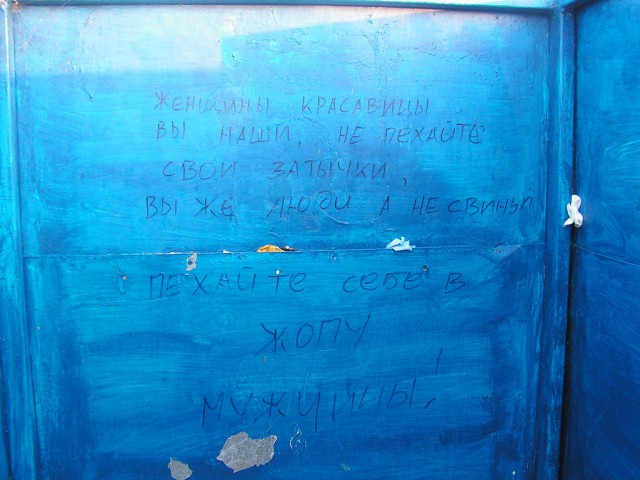 ЖЕНЩИНЫ КРАСАВИЦЫ
ВЫ НАШИ, НЕ ПЕХАЙТЕ
СВОИ ЗАТЫЧКИ,
ВЫ ЖЕ ЛЮДИ А НЕ СВИНЬИ
ПЕХАЙТЕ СЕБЕ В
ЖОПУ
МУЖЧИНЫ!